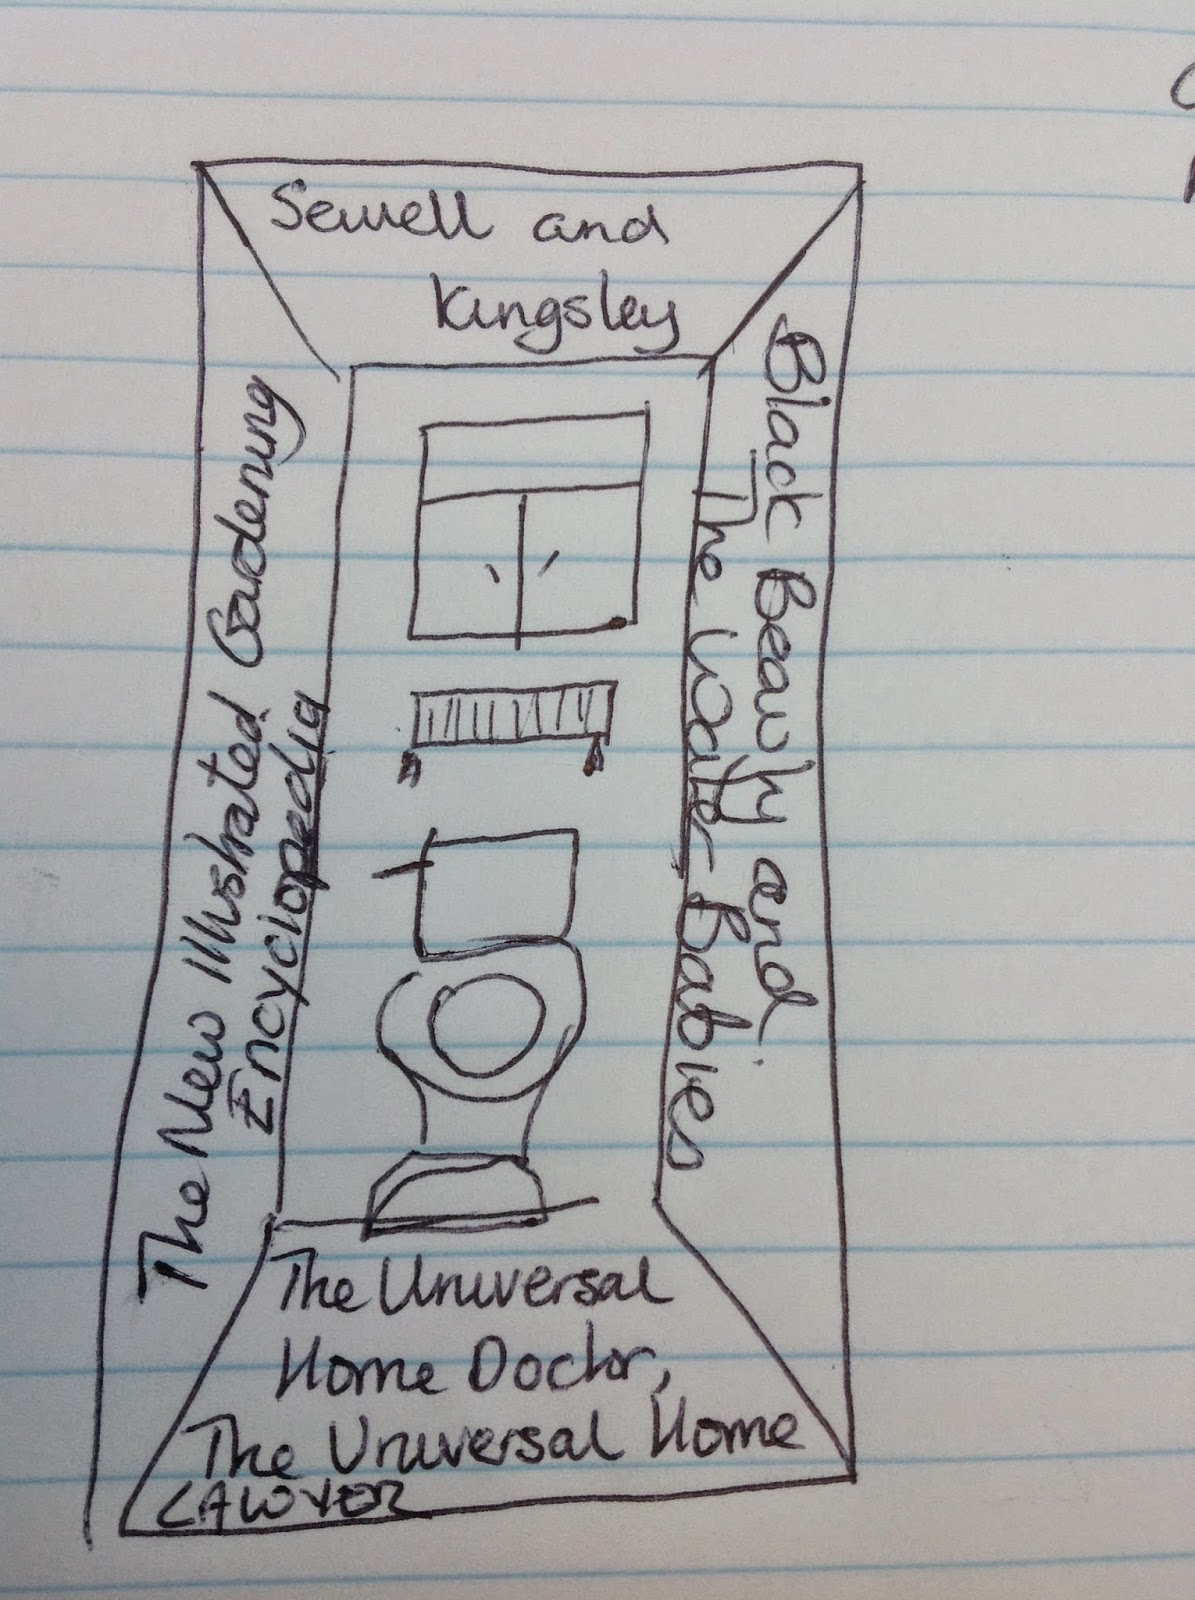 Sewell and
Kingsley
The New Illustrated Gardening
Encyclopedia
Black Beauty and
The Water Babies
The Universal
Home Doctor,
The Universal Home
LAWYER